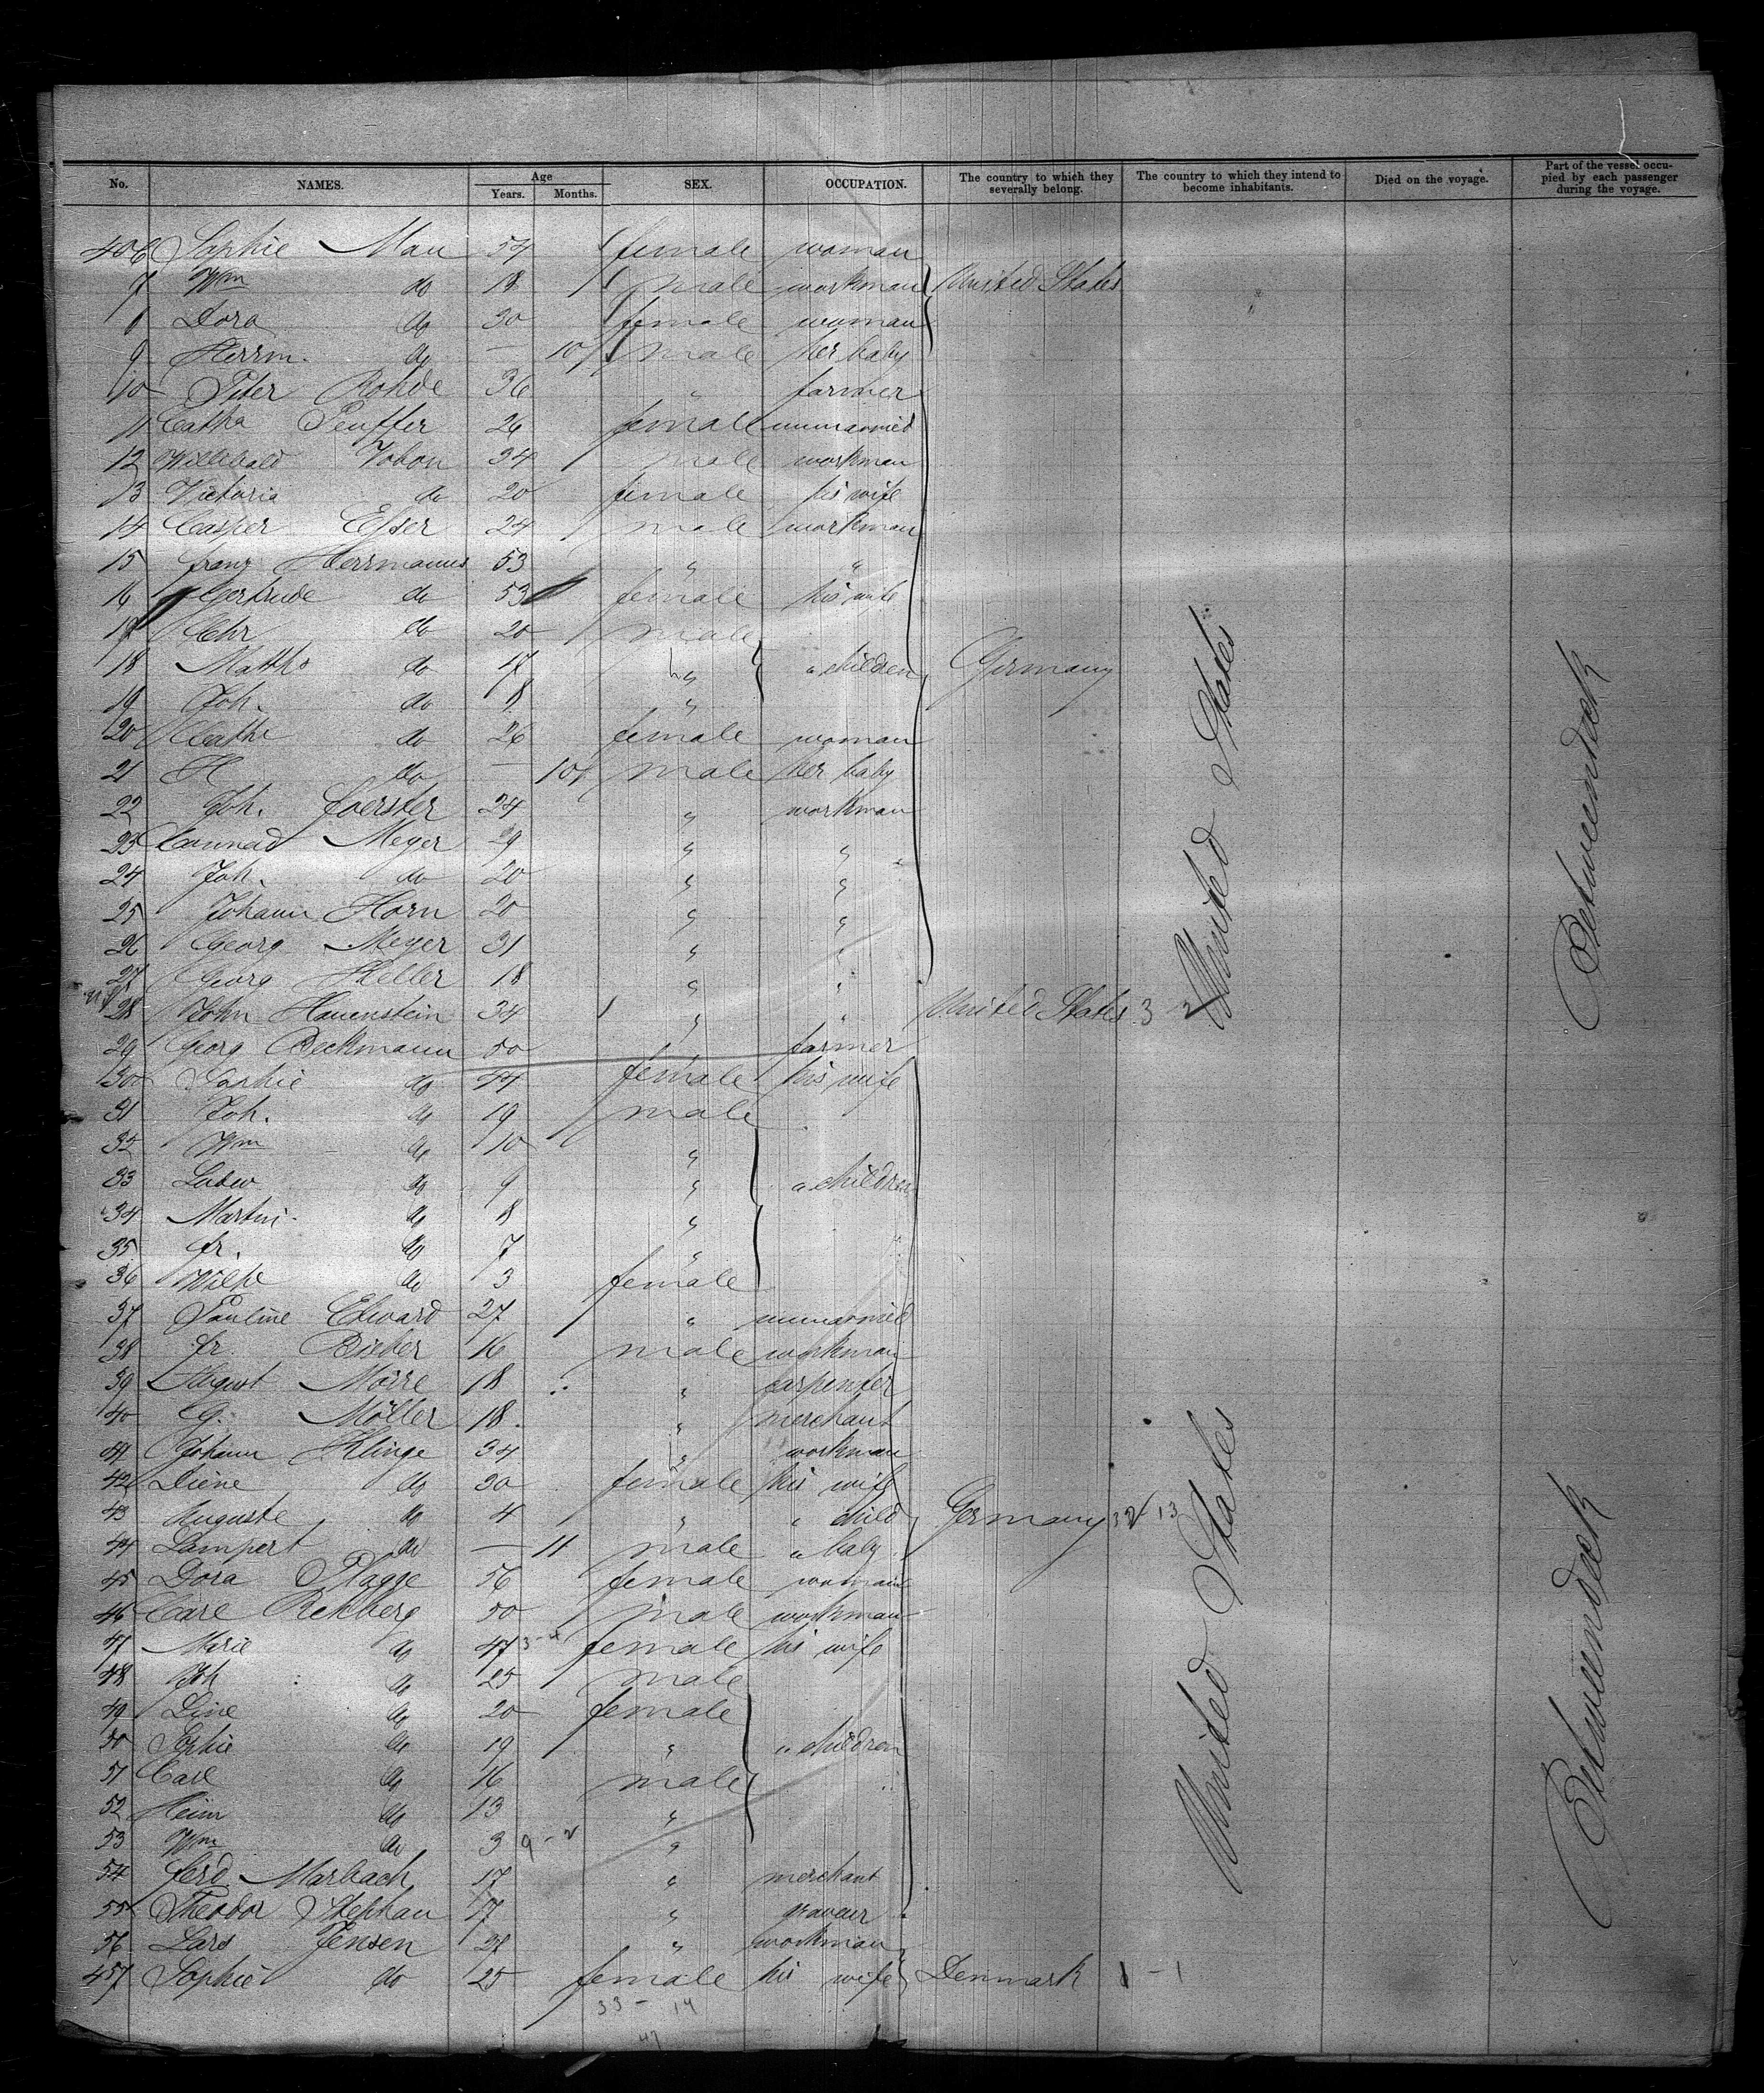 No. NAMES. Age Years. Months. SEX. OCCUPATION. The country to which they severally belong. The country to which they intend to become inhabitants. Died on the voyage. Part of the vessel occupied by each passenger during the voyage.
406 Sophie Mau 54 female woman
7 Wm do 18 male workman United States
8 Dora do 30 female woman
9 Herrm. do — 10 male her baby
10 Peter Rohde 36 " farmer
11 Catha Peuffer 26 female unmarried
12 Willibald Johon 34 male workman
13 Victoria do 20 female his wife
14 Casper Esser 24 male workman
15 Franz Herrmanns 53 " "
16 Gertrude do 53 female his wife
17 Chr do 20 male
18 Matths do 17 " " children Germany
19 Joh. do 8 "
20 Cathe do 26 female woman
21 H do — 10 male her baby
22 Joh. Foerster 24 " workman
23 Connrad Meyer 29 " "
24 Joh. do 20 " "
25 Johann Horn 20 " "
26 Georg Meyer 31 " "
27 Georg Keller 18 " "
28 John Hauenstein 34 " " United States 3
29 Georg Beckmann 50 farmer
30 Sophie do 44 female his wife
31 Joh. do 19 male
32 Wm do 10 "
33 Ludw do 9 " " children
34 Martin do 8 "
35 Fr. do 7 "
36 Wilhe do 3 female
37 Pauline Edward 27 " unmarried
38 Fr. Bieber 16 male workman
39 August Morre 18 " carpenter
40 G. Möller 18 " merchant
41 Johann Klinge 34 " workman
42 Diene do 30 female his wife
43 Auguste do 4 " " child Germany 32 13
44 Lampert do — 11 male " baby
45 Dora Plagge 56 female woman
46 Carl Rehberg 50 male workman
47 Marie do 47 female his wife
48 Joh do 25 male
49 Line do 20 female
50 Sophie do 19 " " children
51 Carl do 16 male
52 Heinr do 13 "
53 Wm do 3 9 - 2 "
54 Ferd. Marbach 17 " merchant
55 Theodor Stephan 17 " graveur
56 Lars Jensen 28 " workman
457 Sophie do 25 female his wife Denmark 1 - 1
33 - 14
47
United States
United States
Betweendeck
Betweendeck